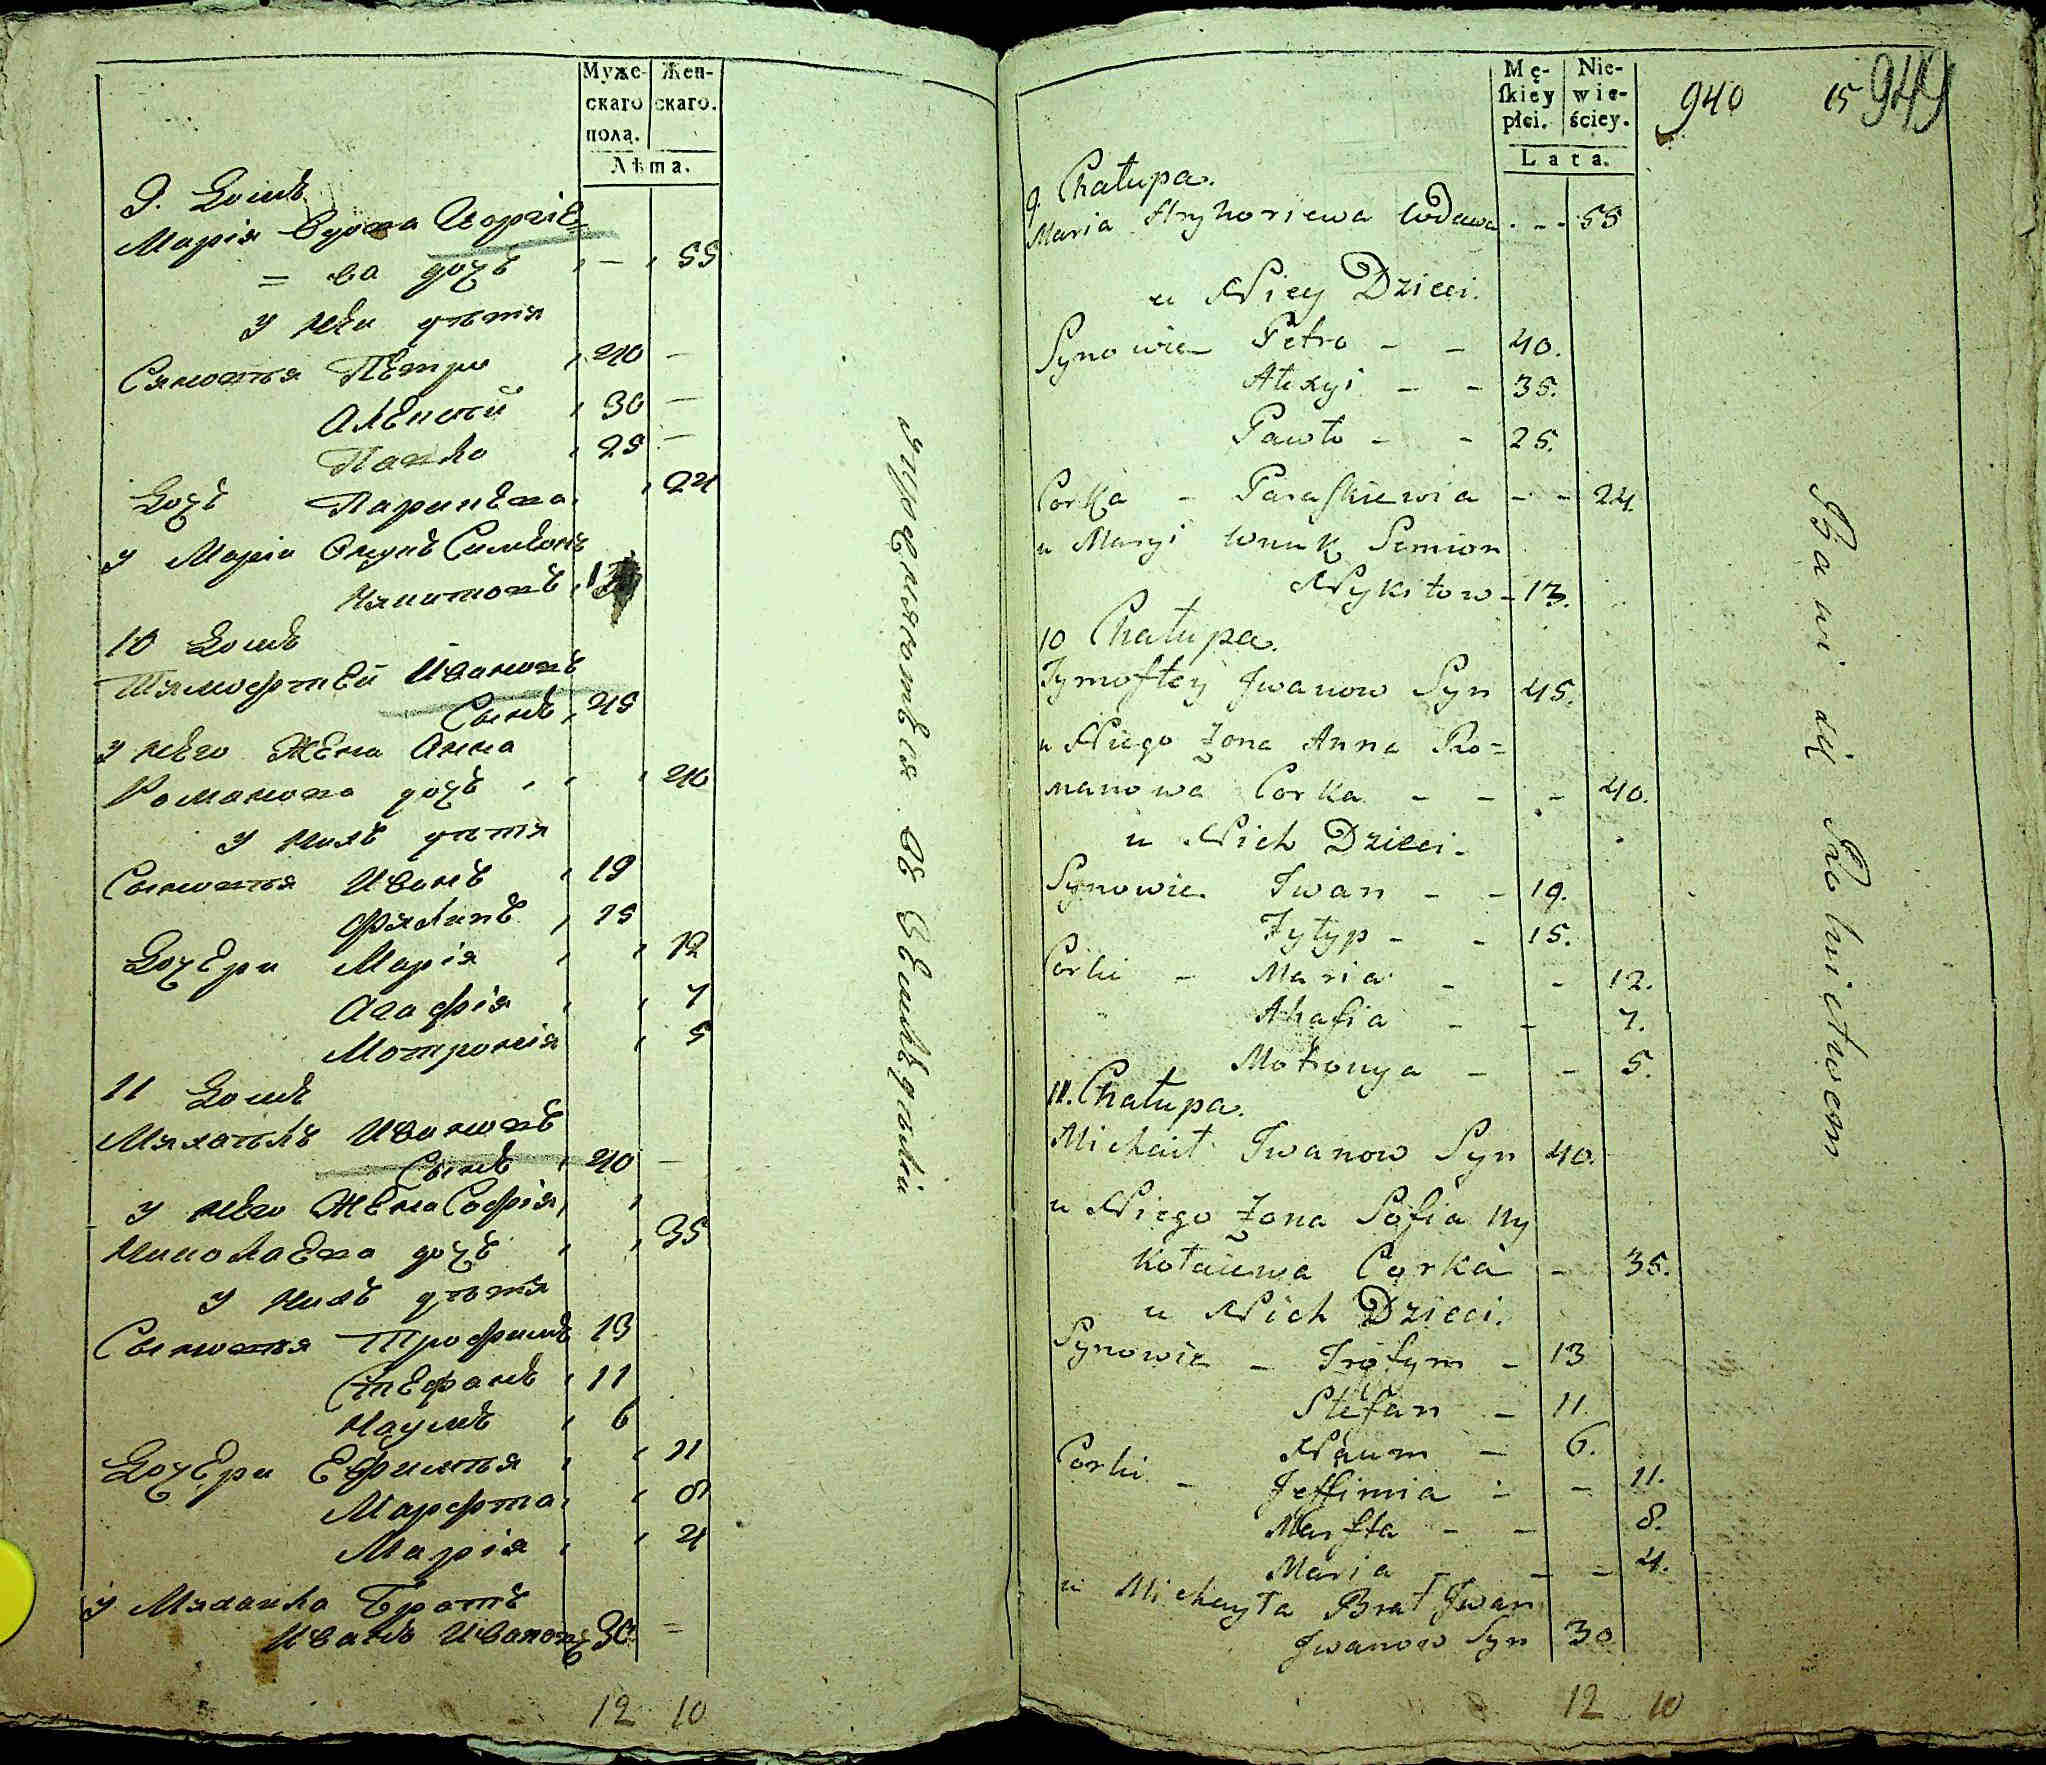 Муже-
скаго
пола.
Жен-
скаго.
Лѣта.
9. Домъ
Марія Вдова Игоріе=
= ва дочъ 55
у неи дѣтя
Сяновья Пѣтро 40
Алексѣй 30
Павло 25
Дочъ Парискева 24
у Маріи Внукъ Симеонъ
Никитовъ 13
10 Домъ
Тимофтей Ивановъ
Сынъ 45
у него Жена Анна
Романова дочъ 40
у нихъ дѣтя
Сыновья Иванъ 19
Филипъ 15
Дочери Марія 12
Агафія 7
Мотронія 5
11 Домъ
Михаилъ Ивановъ
Сынъ 40
у него Жена Софія
Николаева дочъ 35
у нихъ дѣтя
Сыновья Трофимъ 13
Стефанъ 11
Наумъ 6
Дочери Ефимія 11
Марфта 8
Марія 4
у Михаила Братъ
Иванъ Ивановъ 30
12 10
упражняются въ Земледелии
Mę-
skiey
płci.
Nie-
wie-
ściey.
Lata.
940 15 944
9. Chałupa.
Maria Hryhoriewa Wdowa - - 55
u Niey Dzieci.
Synowie Petro - - 40.
Alexyi - - 35.
Pawło - - 25.
Corka - Paraskiewia - - 24
u Maryi Wnuk Semion
Nykitow - 13.
10 Chałupa.
Tymoftey Jwanow Syn 45.
u Niego Żona Anna Ro=
manowa Corka - - - 40.
u Nich Dzieci.
Synowie Jwan - - 19.
Fylyp - - 15.
Corki - Maria - - 12.
Ahafia - - 7.
Motronya - - 5.
11. Chałupa.
Michaił Jwanow Syn 40.
u Niego Żona Sofia Ny
kołaiewa Corka - 35.
u Nich Dzieci.
Synowie - Trofym - 13
Stefan - 11.
Naum - 6.
Corki - Jeffimia - - 11.
Marfta - - 8.
Maria - - - 4.
u Michayła Brat Jwan
Jwanow Syn 30
12 10
Bawi się Rolnictwem